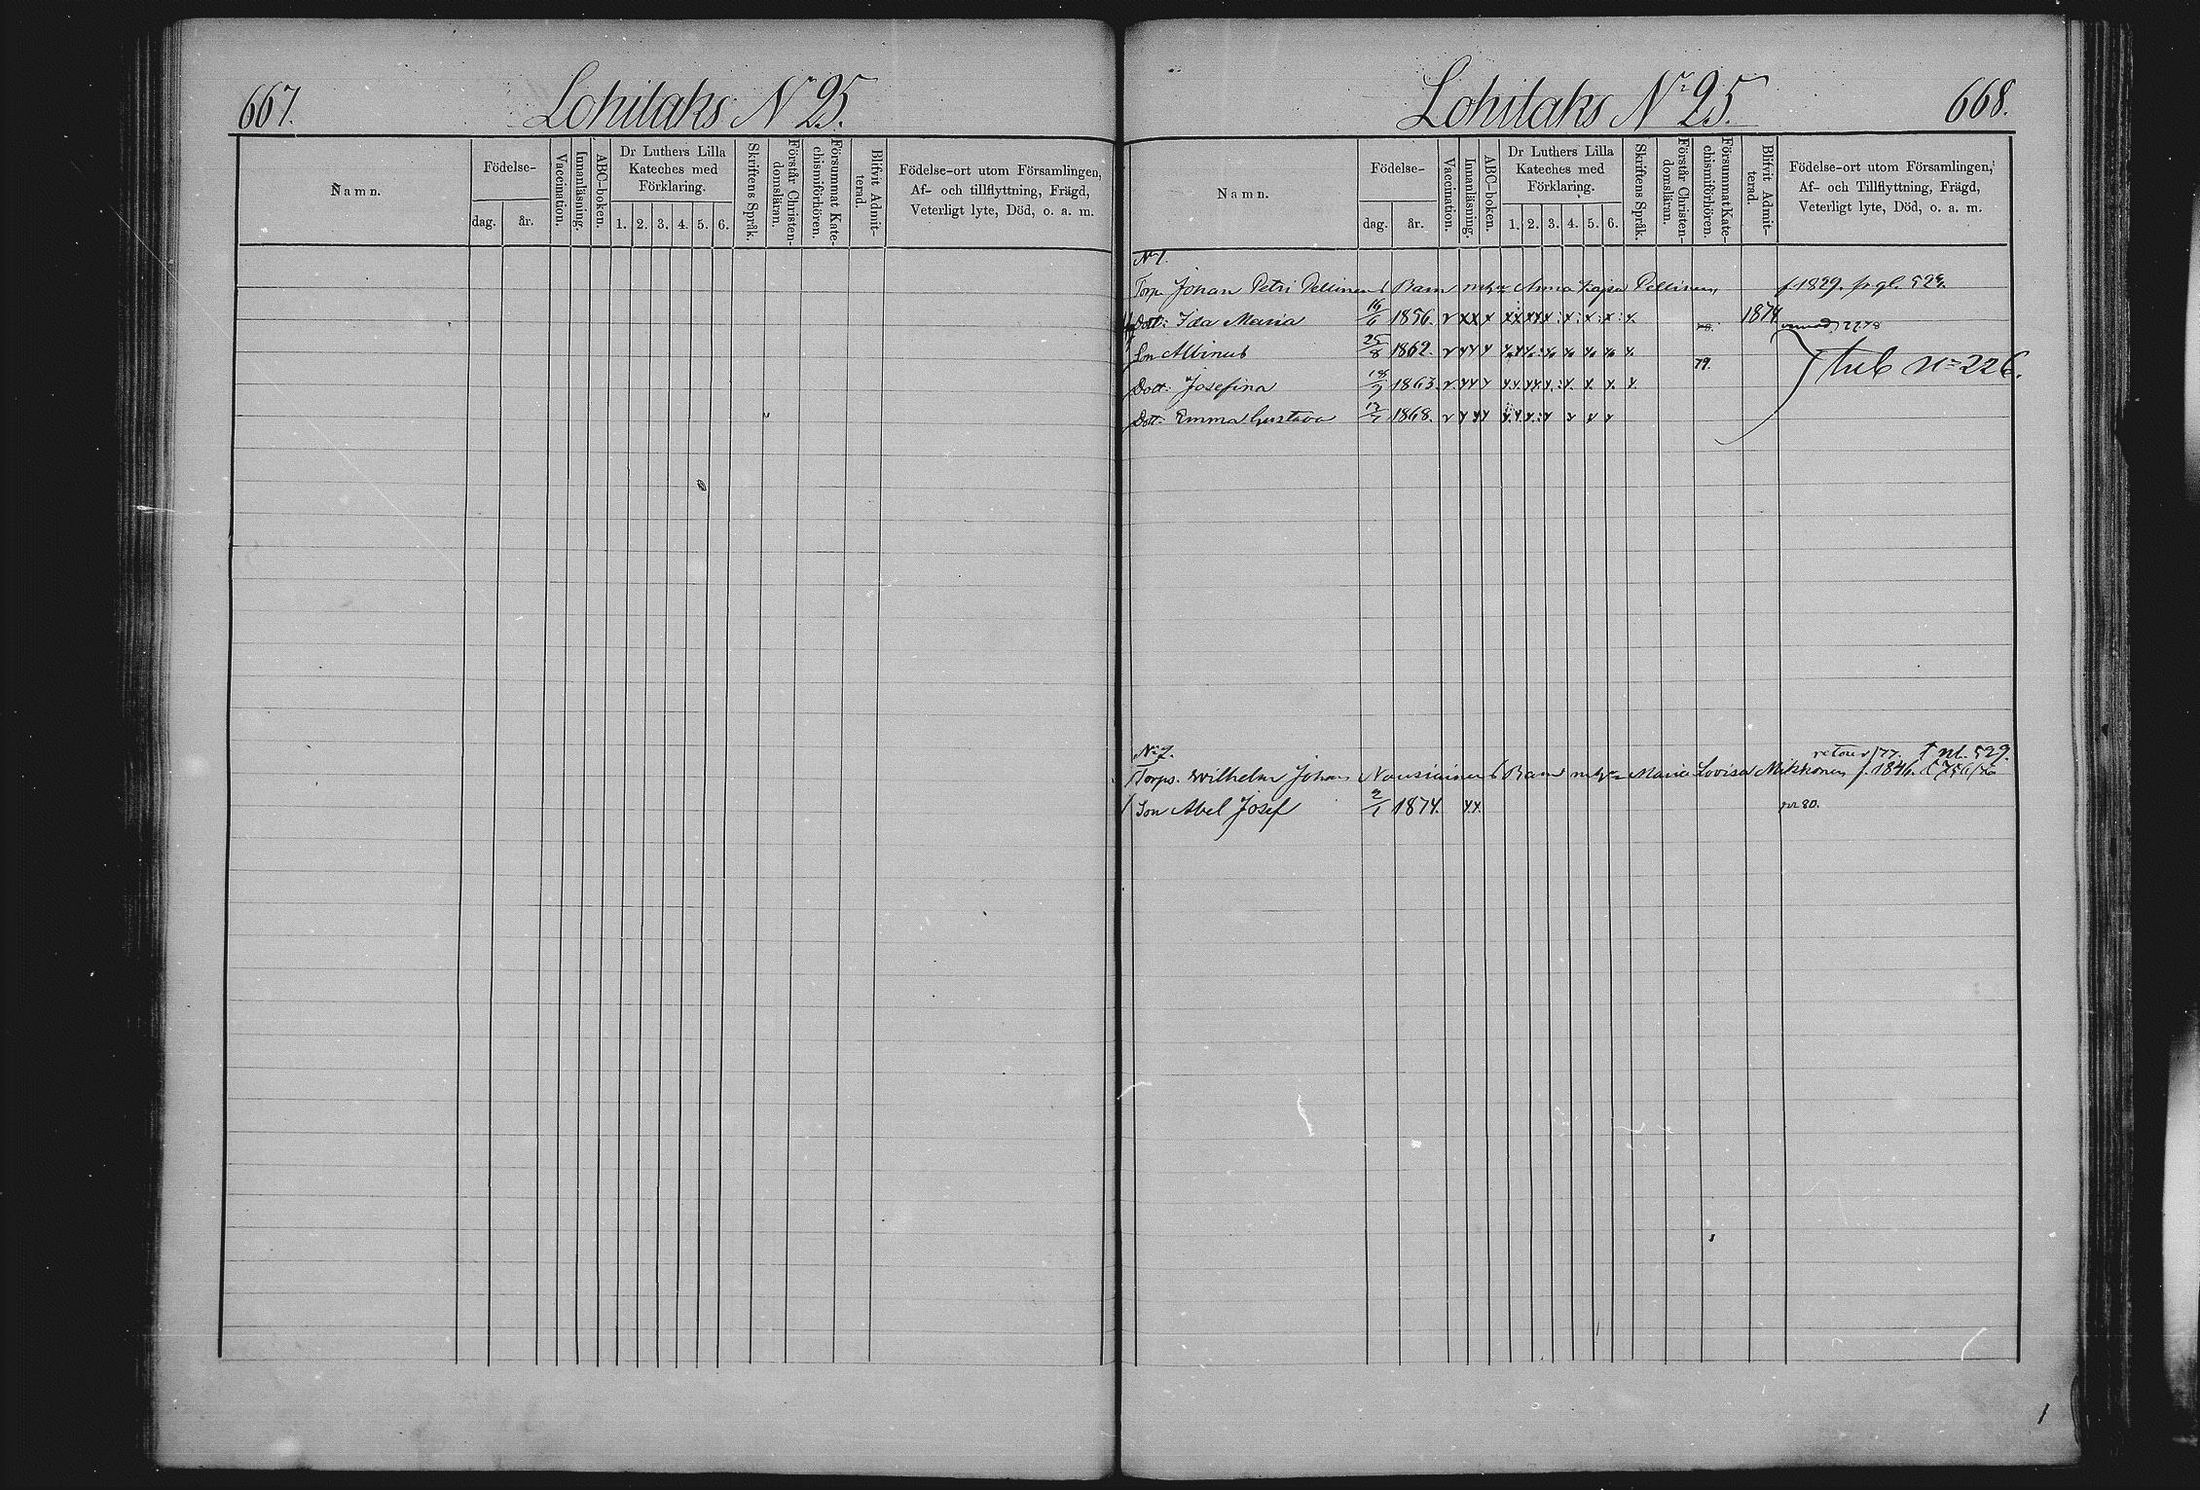 667.
Lohilaks N 25.
Namn.
Födelse-
dag.
år.
Vaccination.
Innanläsning.
ABC-boken.
Dr Luthers Lilla
Kateches med
Förklaring.
1. 2. 3. 4. 5. 6.
Skriftens Språk.
Förstår Christen-
domsläran.
Försummat Kate-
chismiförhören.
Blifvit Admit-
terad.
Födelse-ort utom Församlingen,
Af- och tillflyttning, Frägd,
Veterligt lyte, Död, o. a. m.
Lohilaks Nr 25.
668.
Namn.
Födelse-
dag.
år.
Vaccination.
Innanläsning.
ABC-boken.
Dr Luthers Lilla
Kateches med
Förklaring.
1. 2. 3. 4. 5. 6.
Skriftens Språk.
Förstår Christen-
domsläran.
Försummat Kate-
chismiförhören.
Blifvit Admit-
terad.
Födelse-ort utom Församlingen,
Af- och Tillflyttning, Frägd,
Veterligt lyte, Död, o. a. m.
N 1.
Torp. Johan Petri Pellinens Barn Anna Kajsa Pellinen f 1829. 529.
Dott: Ida Maria 16/6 1856. 1874
Son Albinus 25/8 1862. 79.
Dott: Josefina 18/9 1863. N= 226.
Dott: Emma Gustava 1868.
No 2. retour 77. 529.
Torps. Wilhelm Johan Nousiainens Barn Maria Lovisa Mikkonen f. 1846.
Son Abel Josef 2/1 1874. 80.
1